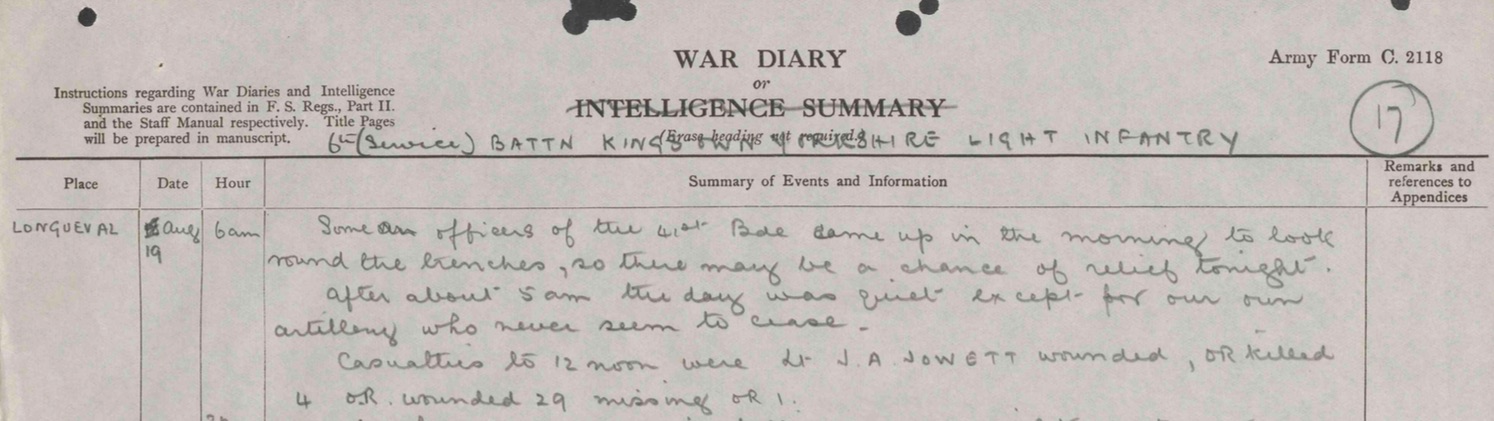 WAR DIARY
or
INTELLIGENCE SUMMARY
(Erase heading not required.)
Army Form C. 2118
Instructions regarding War Diaries and Intelligence
Summaries are contained in F. S. Regs., Part II.
and the Staff Manual respectively. Title Pages
will be prepared in manuscript.
17
6th (Service) BATTN KING'S OWN YORKSHIRE LIGHT INFANTRY
Place Date Hour Summary of Events and Information Remarks and
references to
Appendices
LONGUEVAL Aug 6am Some officers of the 41st Bde came up in the morning to look
19 round the trenches, so there may be a chance of relief tonight.
After about 5 am the day was quiet except for our own
artillery who never seem to cease.
Casualties to 12 noon were Lt J.A. JOWETT wounded, OR killed
4 OR. wounded 29 missing OR 1.